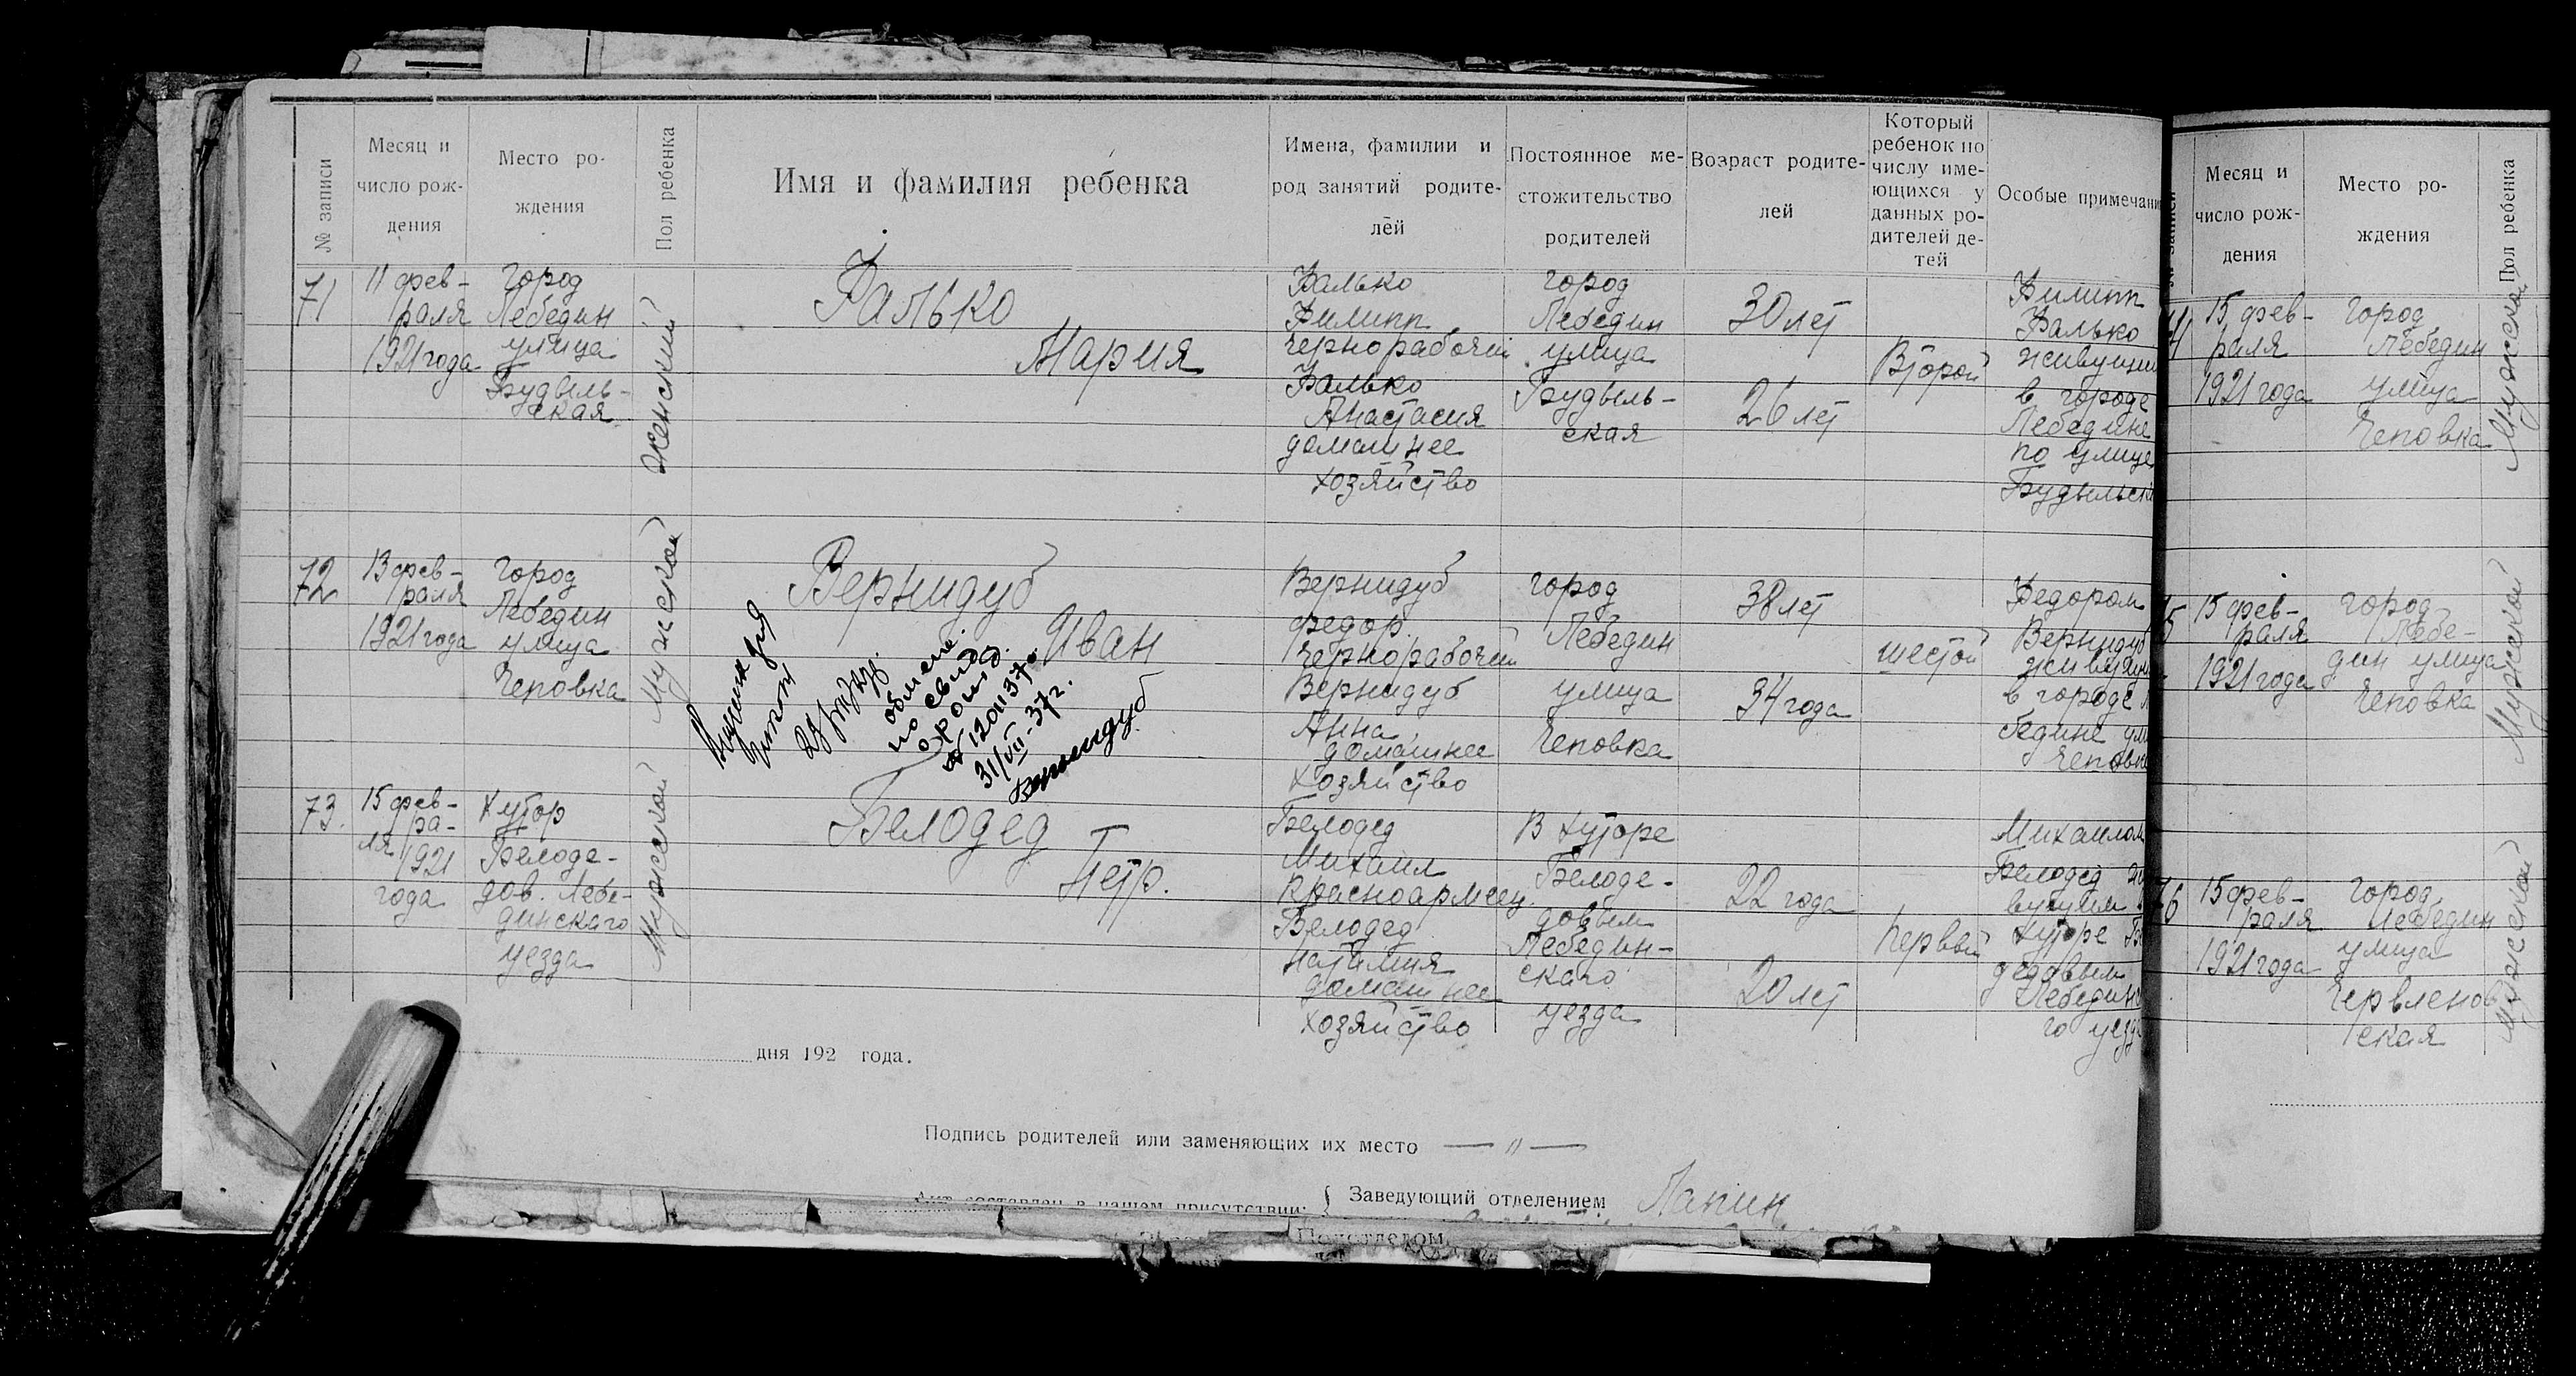 № записи
Месяц и
число рож-
дения
Место ро-
ждения
Пол ребенка
Имя и фамилия ребенка
Имена, фамилии и
род занятий родите-
лей
Постоянное ме-
стожительство
родителей
Возраст родите-
лей
Который
ребенок по
числу име-
ющихся у
данных ро-
дителей де-
тей
Особые примечани
71
11 фев-
раля
1921 года
город
Лебедин
улица
Будыль-
ская
женский
Фалько
Мария
Фалько
Филипп
чернорабочий
Фалько
Анастасия
домашнее
хозяйство
город
Лебедин
улица
Будыль-
ская
30 лет
26 лет
Второй
Филипп
Фалько
живущий
в городе
Лебедине
по улице
Будыльск
72
13 фев-
раля
1921 года
город
Лебедин
улица
Чеповка
мужской
Вернидуб
Иван
обмене
по свид.
№ 12011370
31/VII-37г.
Вернидуб
Вернидуб
Федор
чернорабочий
Вернидуб
Анна
домашнее
хозяйство
город
Лебедин
улица
Чеповка
38 лет
34 года
шестой
Федором
Вернидуб
живущим
в городе Л
бедине ули
Чеповк
73.
15 фев-
ра-
ля 1921
года
Хутор
Белоде-
дов. Лебе-
динскаго
уезда
Мужской
Белодед
Петр.
Белодед
Михаил
Красноармеец.
Белодед
Наталия
домашнее
хозяйство
В Хуторе
Белоде-
довым
Лебедин-
скаго
уезда
22 года
20 лет
первый
Михаилом
Белодед жи
вущим в
Хуторе Бе
дедовым
Лебединск
го уезда
дня 192 года.
Подпись родителей или заменяющих их место — " —
Акт составлен в нашем присутствии:
Заведующий отделением Лапин
Подотделом
№ записи
Месяц и
число рож-
дения
Место ро-
ждения
Пол ребенка
15 фев-
раля
1921 года
город
Лебедин
улица
Чеповка
Мужской
15 фев-
раля
1921 года
город
Лебе-
дин улица
Чеповка
Мужской
76
15 фев-
раля
1921 года
город
Лебедин
улица
Червленов
ская
мужской